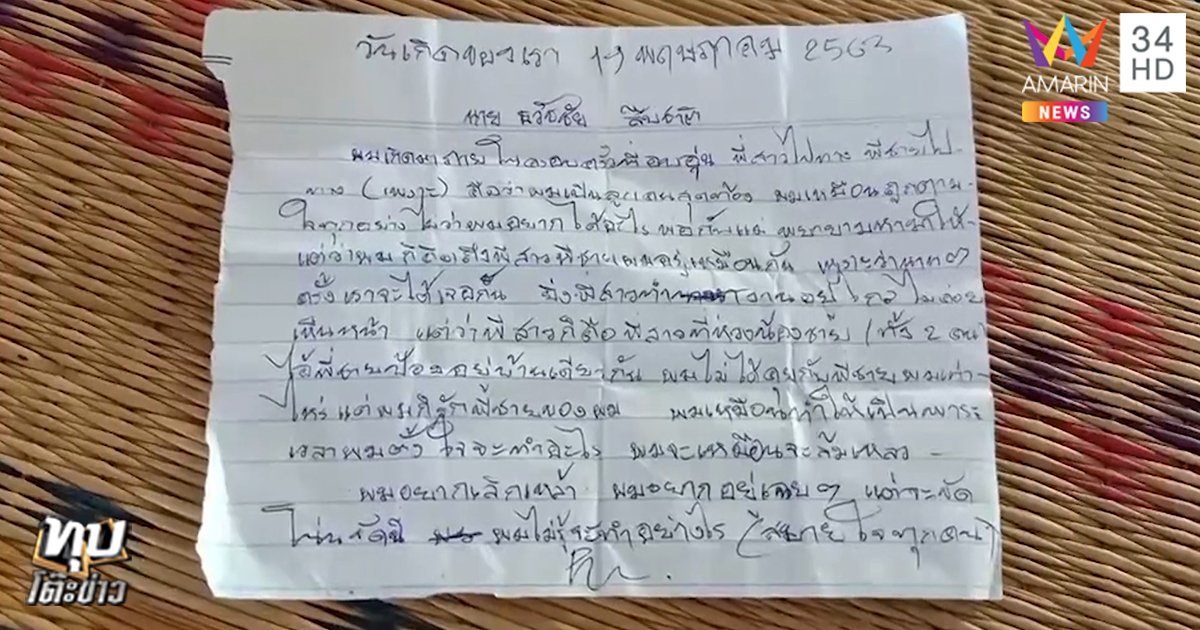 AMARIN
NEWS
34
HD
วันเกิดของเรา 17 พฤษภาคม 2563
นาย ธวัชชัย สืบชาติ
ผมเกิดมาภายในครอบครัวที่อบอุ่น พี่สาวไปทาง พี่ชายไป-
ทาง ( ) ถือว่าผมเป็นลูกคนสุดท้อง ผมเหมือนถูกตาม-
ใจทุกอย่าง ไม่ว่าผมอยากได้อะไร พ่อกับแม่ พยายามหามาให้-
แต่ว่าผมก็คิดถึงพี่สาวพี่ชายผมอยู่เหมือนกัน เพราะว่านานๆ
ครั้งเราจะได้เจอกัน ยิ่งพี่สาวทำ งานอยู่ไกล ไม่ค่อย
เห็นหน้า แต่ว่าพี่สาวก็คือ พี่สาวที่ห่วงน้องชาย (ทั้ง 2 คน)
ไอ้พี่ชายก็ อยู่บ้านเดียวกัน ผมไม่ได้คุยกับพี่ชายผมเท่า-
ไหร่ แต่ผมก็รักพี่ชายของผม ผมเหมือนทำให้เป็นภาระ
เวลาผมตั้งใจจะทำอะไร ผมจะเหมือนจะล้มเหลว -
ผมอยากเลิกเหล้า ผมอยากอยู่เฉยๆ แต่จะขัด
โน่นขัดนี่ ผมไม่รู้จะทำอย่างไร (สบายใจทุกคน)
ทุบ
โต๊ะข่าว